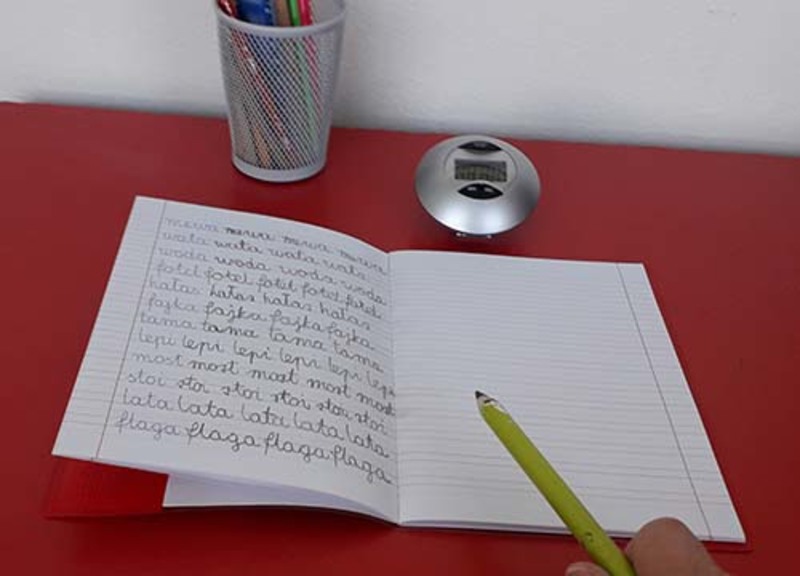 mewa mewa mewa mewa
wata wata wata wata
woda woda woda woda
fotel fotel fotel fotel fotel
hałas hałas hałas hałas
fajka fajka fajka fajka
tama tama tama tama
lepi lepi lepi lepi lepi lepi
most most most most most
stoi stoi stoi stoi stoi stoi
lata lata lata lata lata
flaga flaga flaga flaga